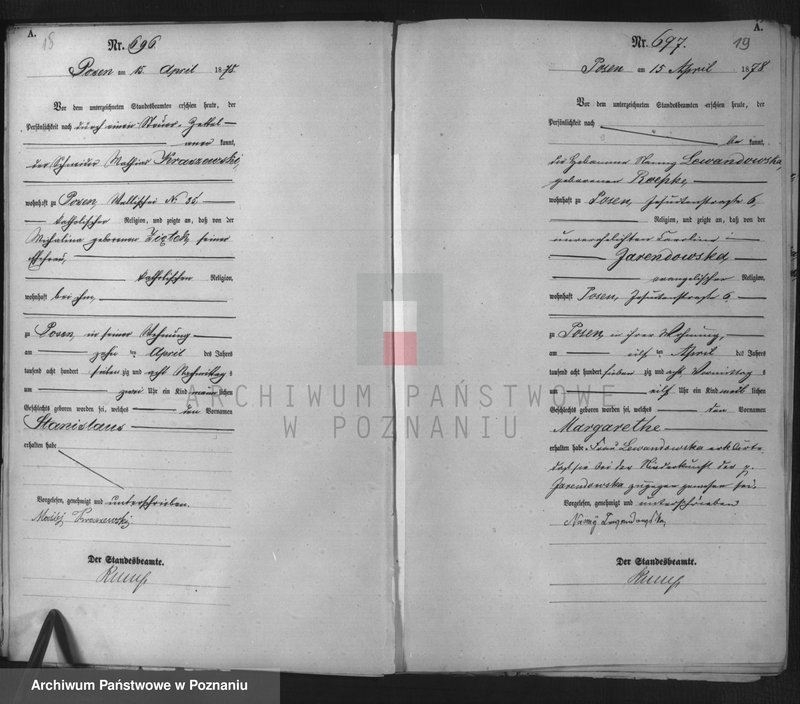 A.
18
Nr. 696.
Posen am 15. April 1878.
Vor dem unterzeichneten Standesbeamten erschien heute, der
Persönlichkeit nach durch einen Steuer-Zettel
aner kannt,
der Schneider Mathias Kraszewski,
wohnhaft zu Posen, Wallischei No 35,
katholischer Religion, und zeigte an, daß von der
Michalina geborenen Ziętek, seiner
Ehefrau,
katholischen Religion,
wohnhaft bei ihm,
zu Posen, in seiner Wohnung
am zehn ten April des Jahres
tausend acht hundert sieben zig und acht Nachmittag s
um zwei Uhr ein Kind männ lichen
Geschlechts geboren worden sei, welches den Vornamen
Stanislaus
erhalten habe
Vorgelesen, genehmigt und unterschrieben.
Maciej Kraszewski
Der Standesbeamte.
A.
19
Nr. 697.
Posen am 15 April 1878
Vor dem unterzeichneten Standesbeamten erschien heute, der
Persönlichkeit nach
be kannt,
die Hebamme Nanny Lewandowska,
geborenen Roepke,
wohnhaft zu Posen, Jesuitenstraße 6,
Religion, und zeigte an, daß von der
unverehelichten Karoline
Jarendowska,
evangelischer Religion,
wohnhaft Posen, Jesuitenstraße 6
zu Posen, in ihrer Wohnung,
am elf ten April des Jahres
tausend acht hundert sieben zig und acht Vormittag s
um elf Uhr ein Kind weib lichen
Geschlechts geboren worden sei, welches den Vornamen
Margarethe
erhalten habe. Frau Lewandowska erklärte,
daß sie bei der Niederkunft der p.
Jarendowska zugegen gewesen sei.
Vorgelesen, genehmigt und unterschrieben
Nanny Lewandowska,
Der Standesbeamte.
ARCHIWUM PAŃSTWOWE
W POZNANIU
Archiwum Państwowe w Poznaniu